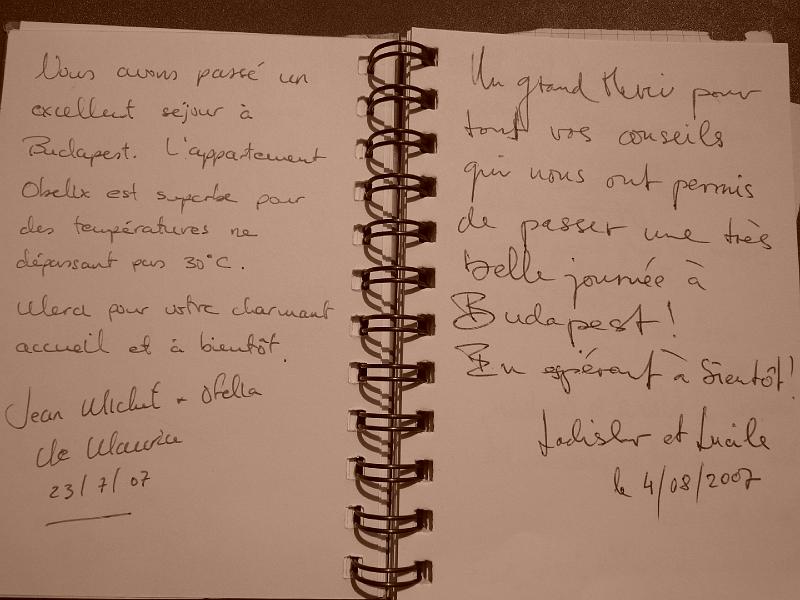 Nous avons passé un
excellent séjour à
Budapest. L'appartement
Obelix est superbe pour
des températures ne
dépassant pas 30°C.
Merci pour votre charmant
accueil et à bientôt.
Jean Michel + Ofelia
Ile Maurice
23/7/07
Un grand Merci pour
tout vos conseils
qui nous ont permis
de passer une très
belle journée à
Budapest!
En espérant à bientôt!
Ladislav et Lucile
le 4/08/2007